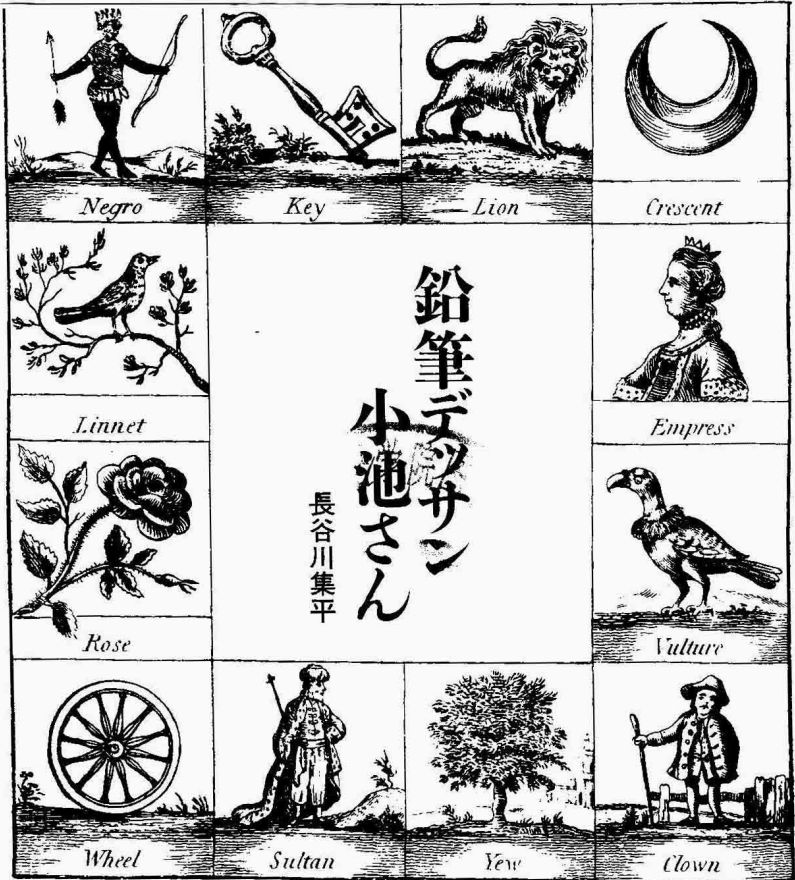 Negro
Key
Lion
Crescent
Linnet
鉛筆デッサン
小池さん
長谷川集平
Empress
Rose
Vulture
Wheel
Sultan
Yew
Clown